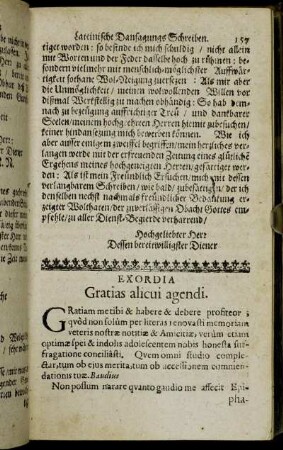 Lateinische Dancksagungs Schreiben. 157
tiget worden: so befinde ich mich schuldig / nicht allein
mit Worten und der Feder dasselbe hoch zu rühmen: be-
sondern vielmehr mit menschlich-möglichster Auffwär-
tigkeit sothane Wol-Neigung zuersetzen: Als mir aber
die Unmöglichkeit / meinen wolwollenden Willen vor
dißmal Werckstellig zu machen obhändig: So hab dem-
nach zu bezeigung auffrichtiger Treu / und danckbarer
Seelen / meinen hochg. ehrten Herren hiemit zubesuchen /
keiner hindansetzung mich bewerben können. Wie ich
aber ausser einigem zweiffel begreiffen / mein herzliches ver-
langen werde mit der erfreuenden Zeitung eines glückliche
Ergehens meines hochgeneigten Herren / gesättiget wer-
den: Als ist mein Freundlich Ersuchen / mich mit dessen
verlangbarem Schreiben / wie bald / zubesättigen / der ich
denselben nechst nachmals freundlicher Bedanckung er-
zeigter Wolthaten / der zuverlässigen Obacht Gottes em-
pfehle / zu aller Dienst-Begierde verharrend /
Hochgeliebter Herr
Dessen bereitwilligster Diener
EXORDIA
Gratias alicui agendi.
GRatiam me tibi & habere & debere profiteor;
qvòd non solùm per literas renovasti memoriam
veteris nostræ notitiæ & Amicitiæ, verùm etiam
optimæ spei & indolis adolescentem nobis honesta suf-
fragatione conciliasti. Qvem omni studio comple-
ctar, tum ob ejus merita, tum ob accessionem commen-
dationis tuæ. Baudius
Non possum narare qvanto gaudio me affecit Epi-
pha-